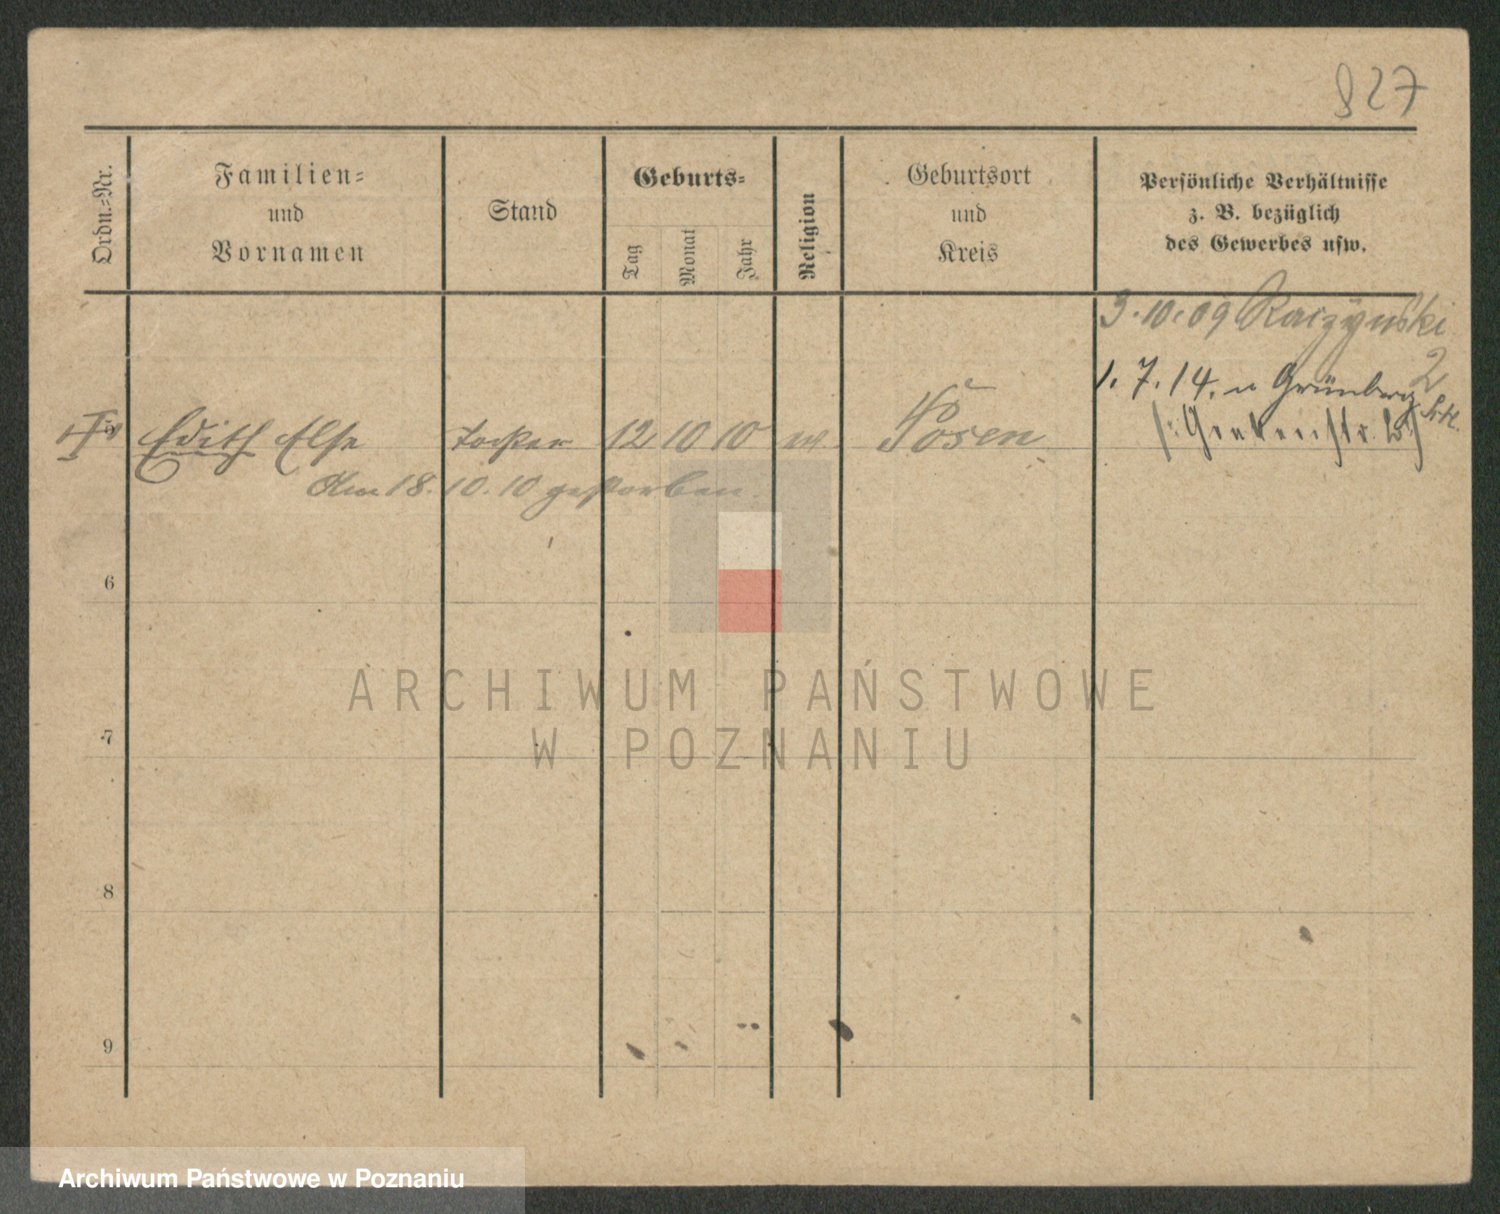 827
Ordn.-Nr.
Familien-
und
Vornamen
Stand
Geburts-
Tag
Monat
Jahr
Religion
Geburtsort
und
Kreis
Persönliche Verhältnisse
z. B. bezüglich
des Gewerbes usw.
3.10.09 Raczynski
2
1. 7. 14. n Grünberg
Edith Else Tochter 12 10 10 Posen
Am 18. 10. 10 gestorben.
6
ARCHIWUM PAŃSTWOWE
7
W POZNANIU
8
9
Archiwum Państwowe w Poznaniu